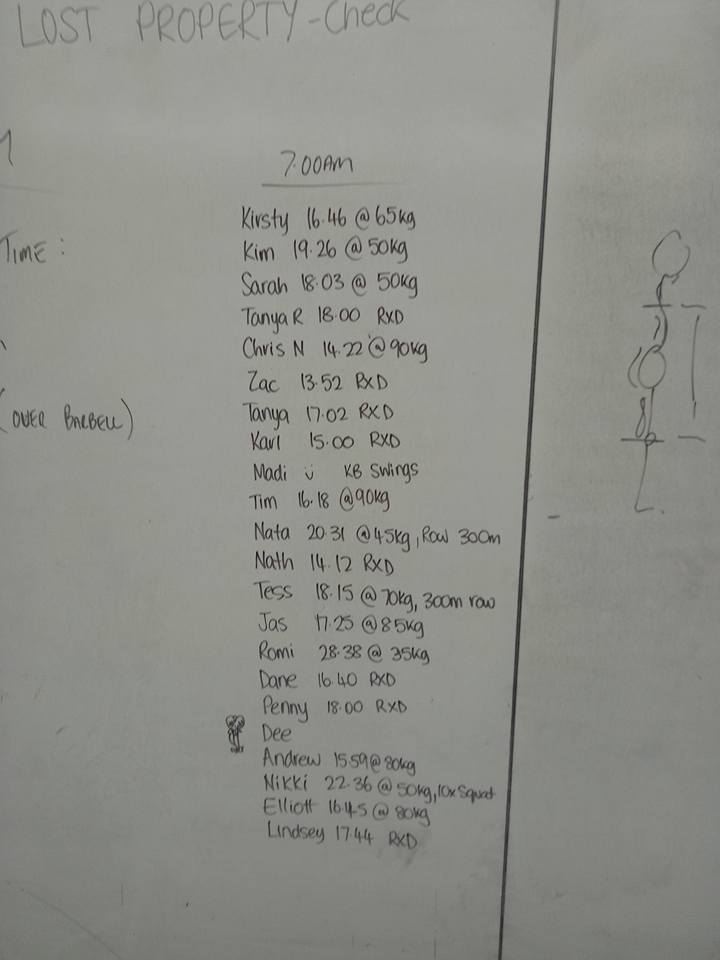 LOST PROPERTY - Check
7.00AM
TIME :
(OVER BARBELL)
Kirsty 16.46 @ 65kg
Kim 19.26 @ 50kg
Sarah 18.03 @ 50kg
Tanya R 18.00 RXD
Chris N 14.22 @ 90kg
Zac 13.52 RXD
Tanya 17.02 RXD
Karl 15.00 RXD
Madi KB Swings
Tim 16.18 @ 90kg
Nata 20.31 @ 45kg, Row 300m
Nath 14.12 RXD
Tess 18.15 @ 70kg, 300m row
Jas 17.25 @ 85kg
Romi 28.38 @ 35kg
Dane 16.40 RXD
Penny 18.00 RXD
Dee
Andrew 15.59 @ 80kg
Nikki 22.36 @ 50kg, 10x Squat
Elliott 16.45 @ 80kg
Lindsey 17.44 RXD